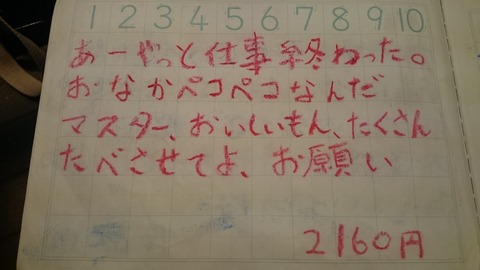 1 2 3 4 5 6 7 8 9 10
あーやっと仕事終わった。
おなかペコペコなんだ
マスター、おいしいもん、たくさん
たべさせてよ、お願い
2160円